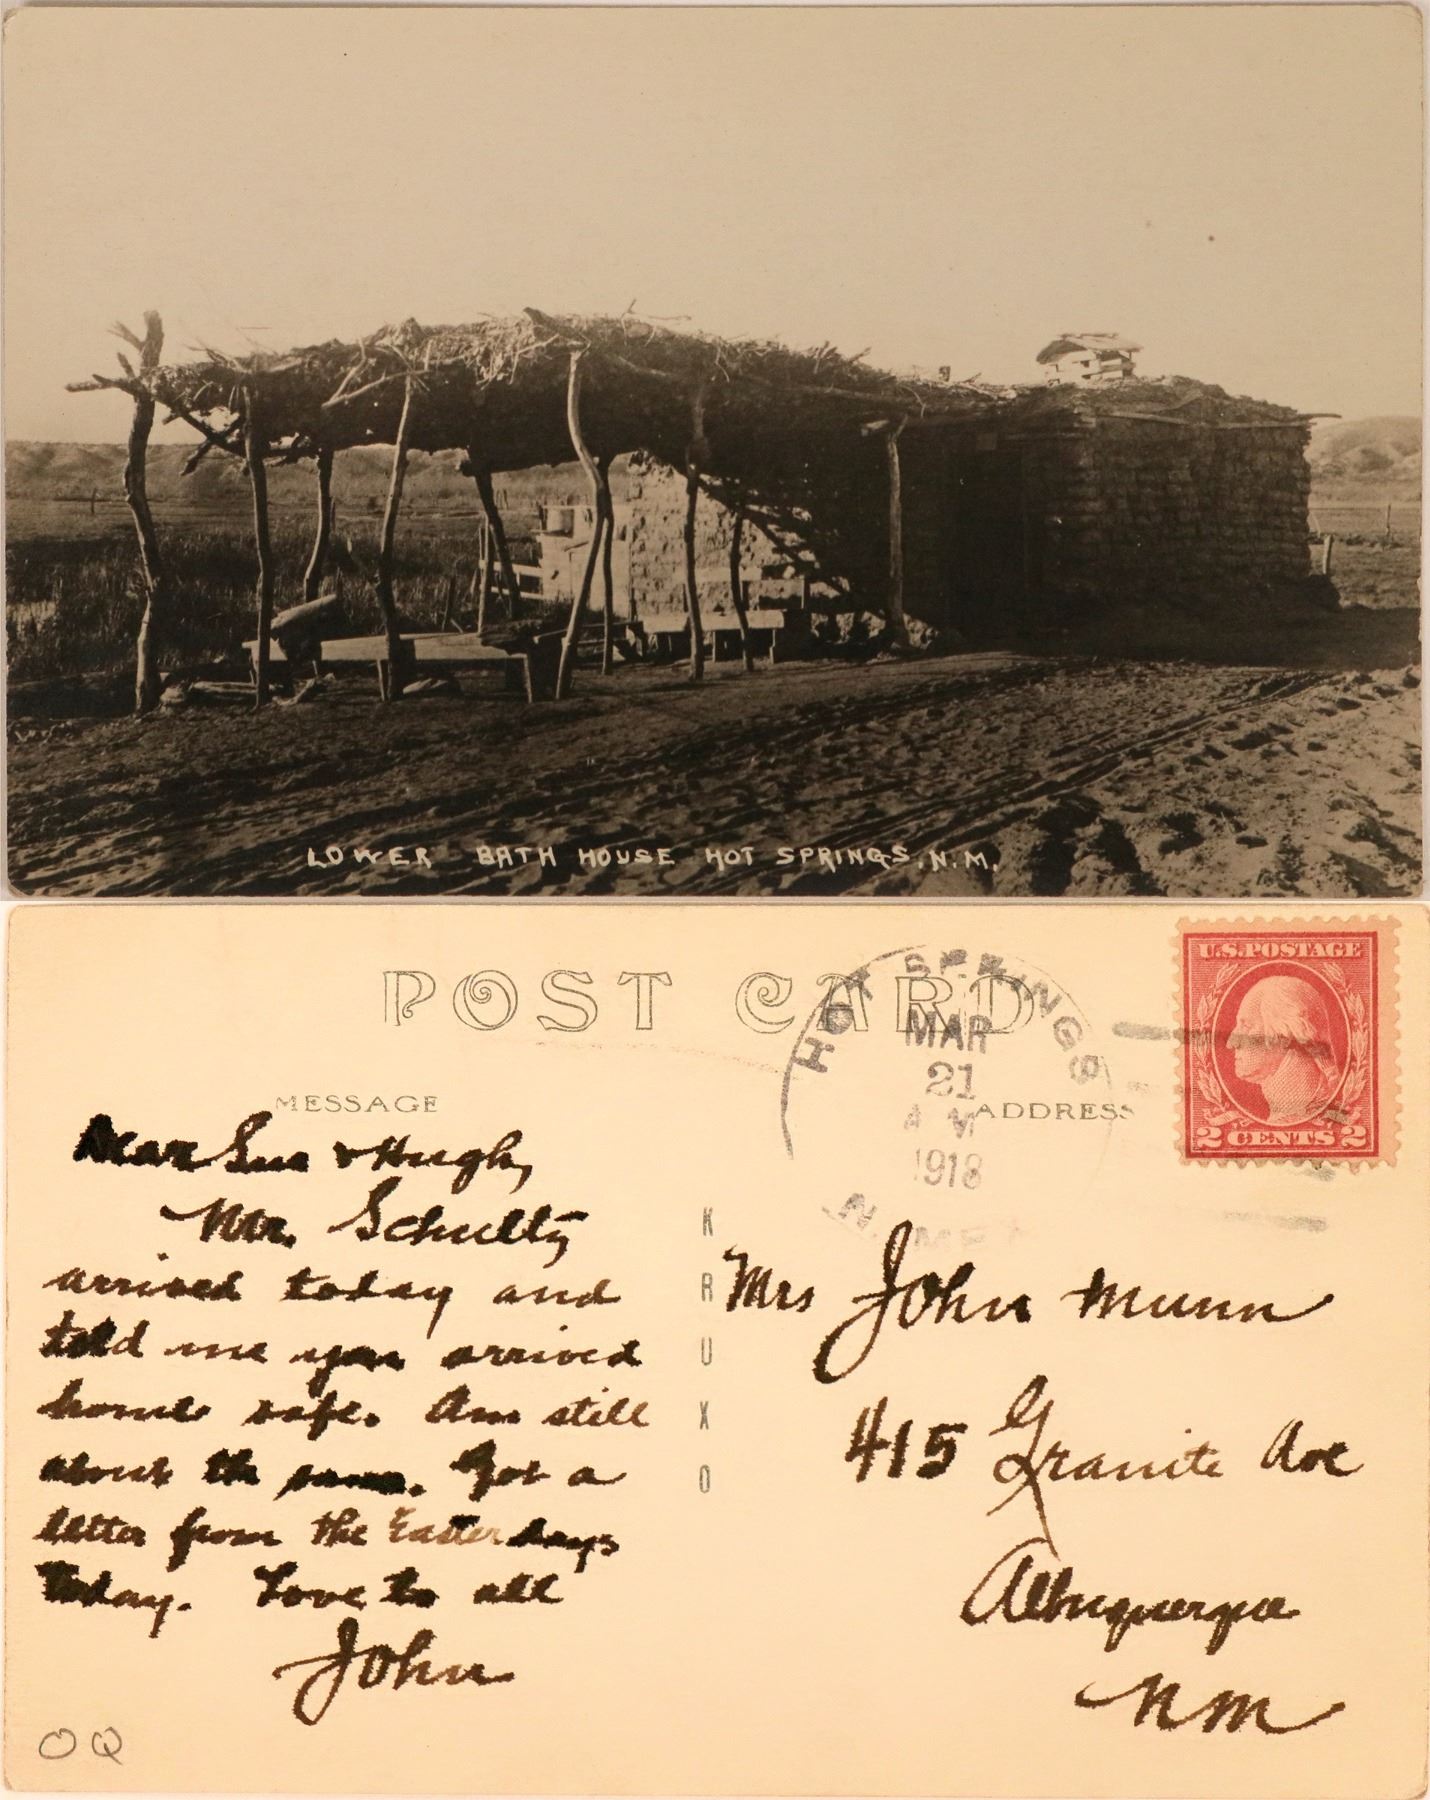 LOWER BATH HOUSE HOT SPRINGS, N.M.
POST CARD
HOT SPRINGS
MAR
21
A M
1918
N. MEX
U.S. POSTAGE
2 CENTS 2
MESSAGE
ADDRESS
Dear Sue & Hugh,
Mr. Schultz
arrived today and
told me you arrived
home safe. Am still
about the same. Got a
letter from the Easterdays
today. Love to all
John
KRUXO
Mrs John Munn
415 Granite Ave
Albuquerque
NM
OQ